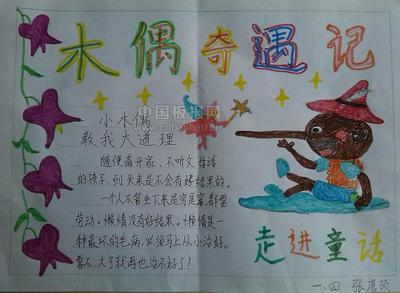 木偶奇遇记
中国板报网
小木偶
教我大道理
随便离开家、不听父母话
的孩子,到头来是不会有好结果的。
一个人不管生下来是穷是富,都要
劳动。懒惰没有好结果。懒惰是一
种最坏的毛病,必须马上从小治好。
要不,大了就再也治不好了!
走进童话
一、四